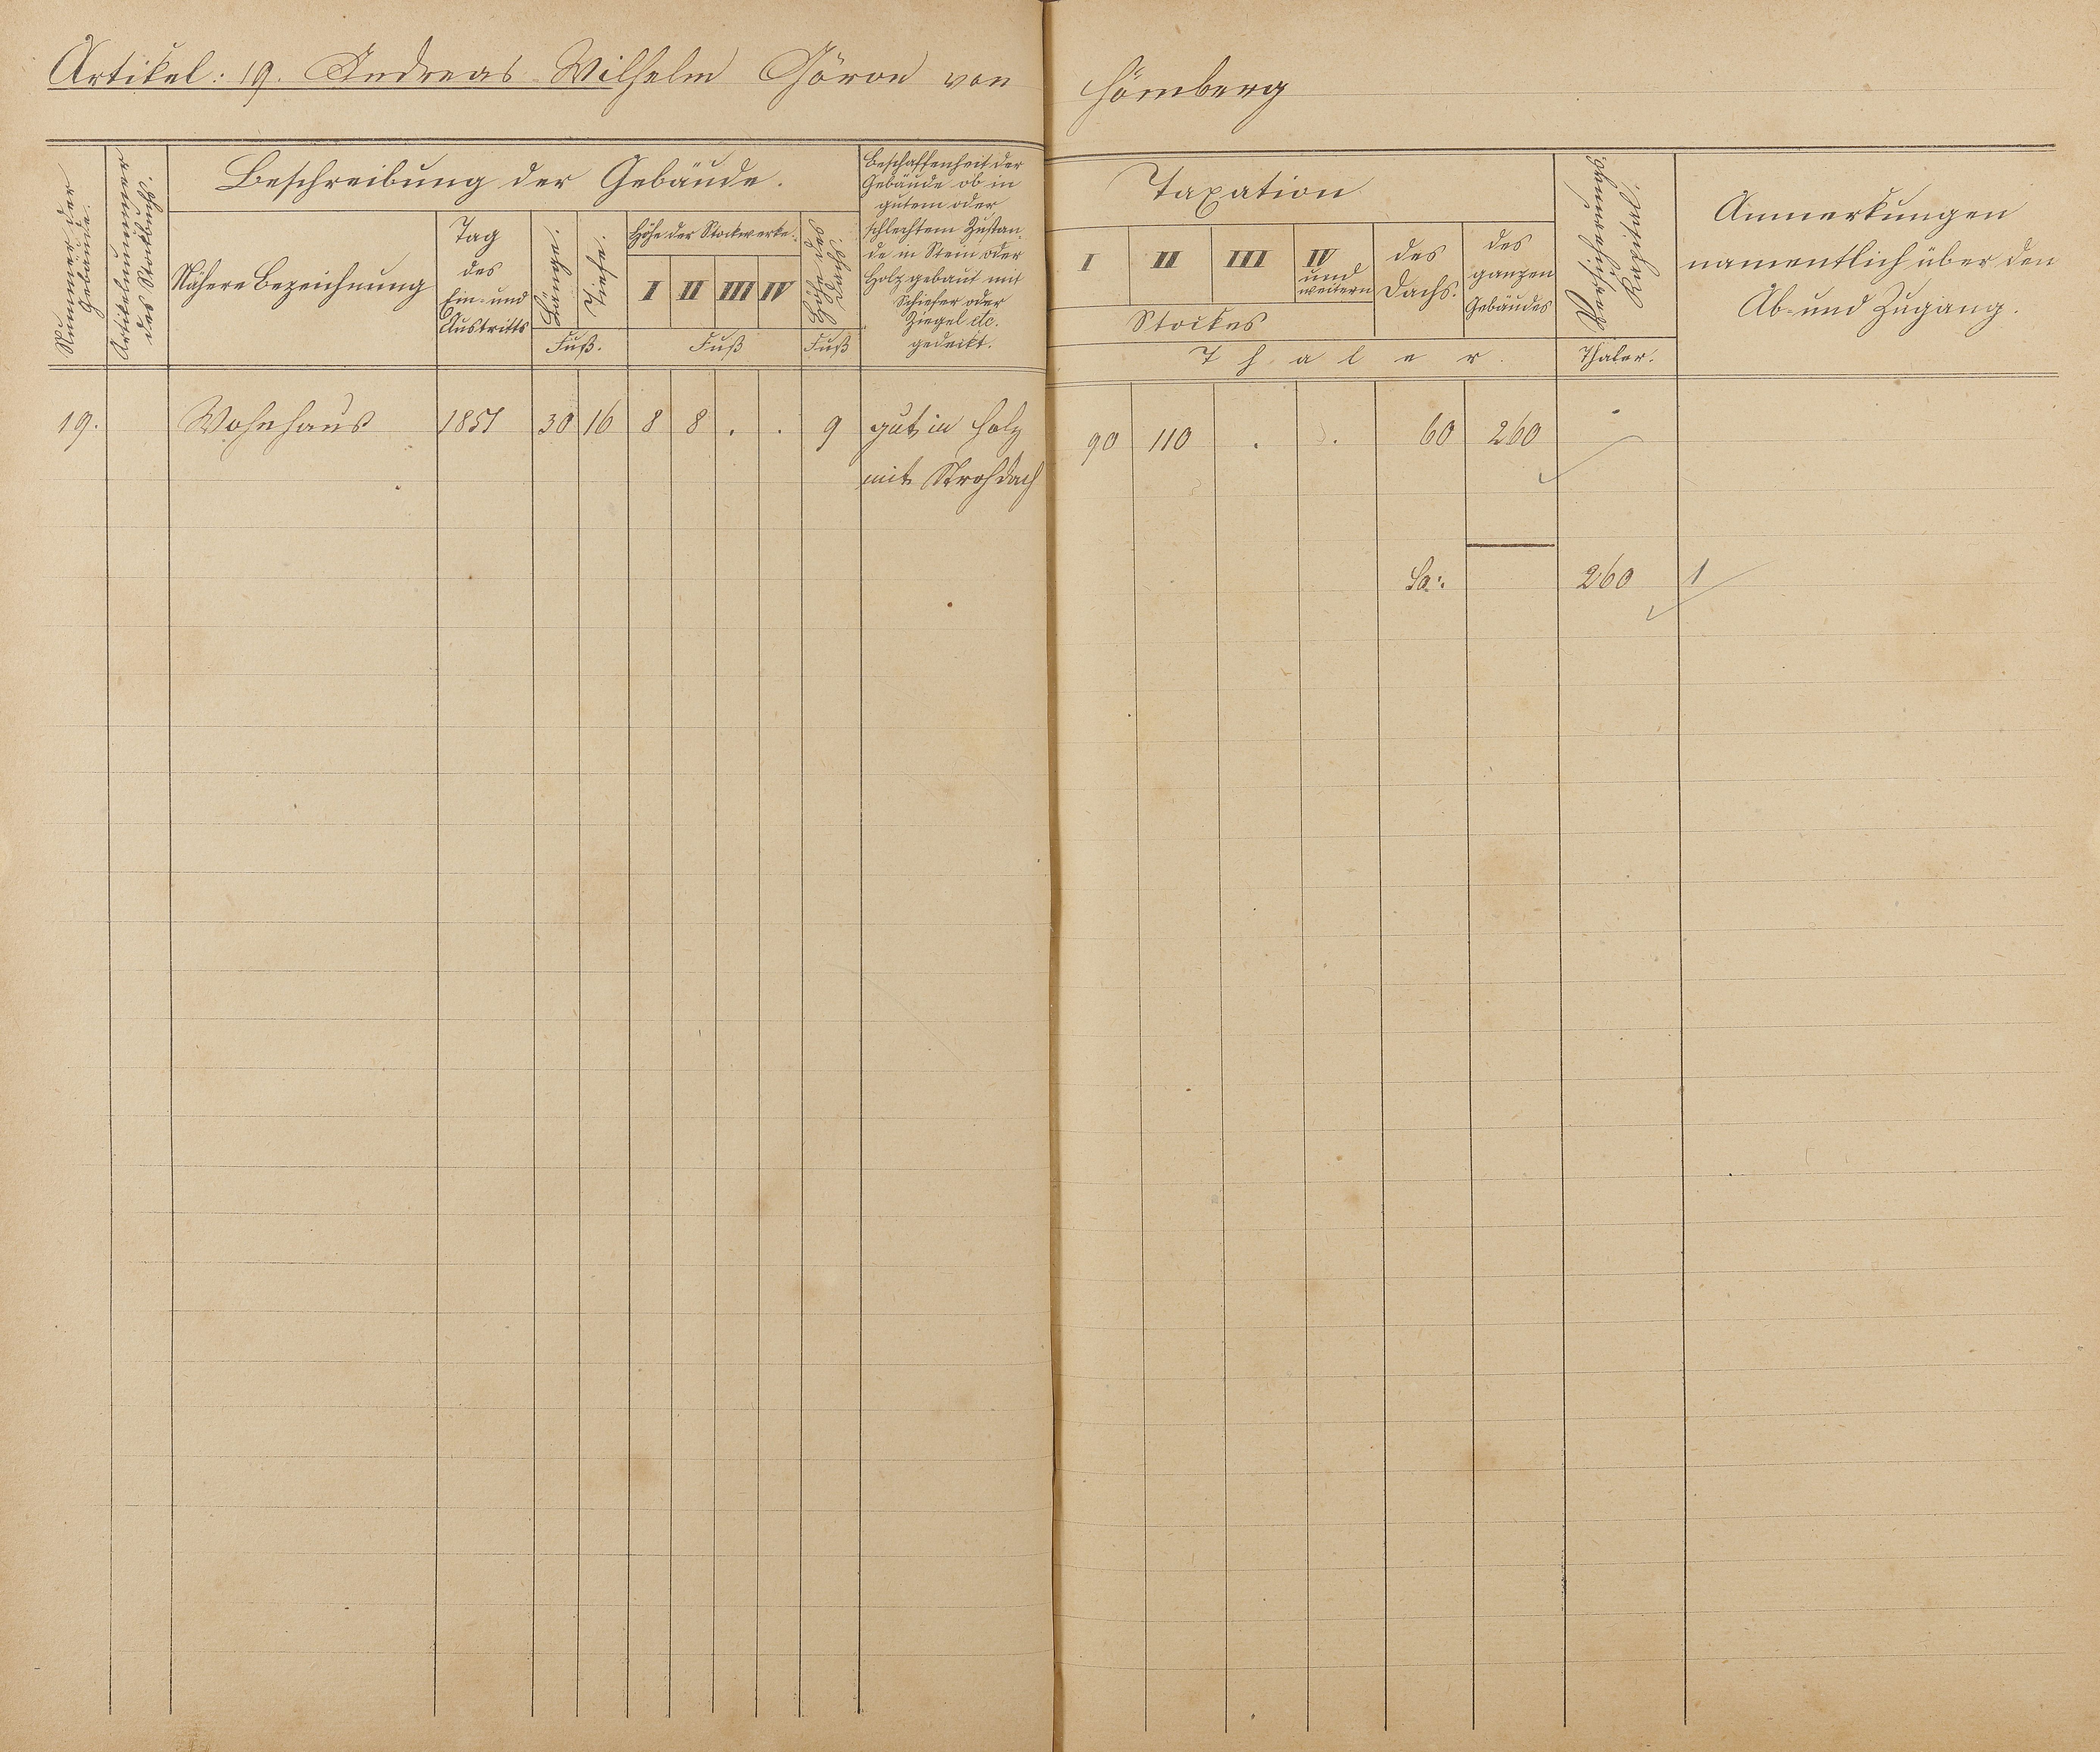 Artikel: 19. Andreas Wilhelm von Hömberg
Nummer der Gebäude.
Artikelnummer des Stockbuchs.
Beschreibung der Gebäude.
Nähere Bezeichnung
Tag
des
Ein- und
Austritts
Länge.
Tiefe.
Fuß.
Höhe der Stockwerke.
I II III IV
Fuß
Höhe des Daches.
Fuß
Beschaffenheit der
Gebäude ob in
gutem oder
schlechtem Zustan-
de in Stein oder
Holz gebaut mit
Schiefer oder
Ziegel etc.
gedeikt.
Taxation
I II III IV
und
weitern
Stockes
des
Dachs.
des
ganzen
Gebäudes
Thaler.
Kapital.
Thaler.
Anmerkungen
namentlich über den
Ab- und Zugang.
19. Wohnhaus 1851 30 16 8 8 . . 9 gut in Holz 90 110 . . 60 260
mit Strohdach
Sa: 260 1